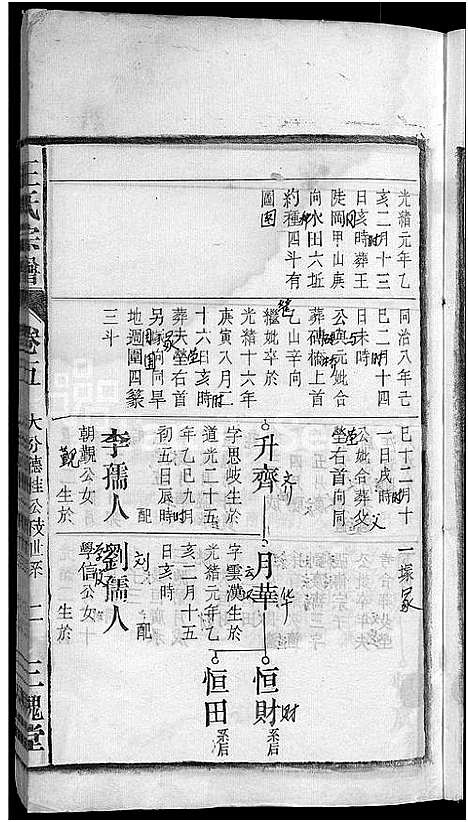 光緒元年乙
亥二月十三
日亥時葬王
陡岡甲山庚
向水田六坵
約種四斗有
圖
同治八年己
巳二月十四
日未時
公與元妣合
葬磚橋上首
乙山辛向
繼妣卒於
光緒十六年
庚寅八月二
十六日亥時
葬夫塋右首
另塚向同旱
地週圍四篆
三斗
巳十二月十
一日戌時
公妣合葬父
塋右首向同
一塚
升齊
字思岐生於
道光二十五
年乙巳九月
初五日辰時
配
李孺人
朝觀公女
生於
月華
字雲漢生於
光緒元年乙
亥二月十五
日亥時
配
劉孺人
學信公女
生於
恒財
系后
恒田
系后
王氏宗譜
卷五
大分德桂公支世系
二
三槐堂